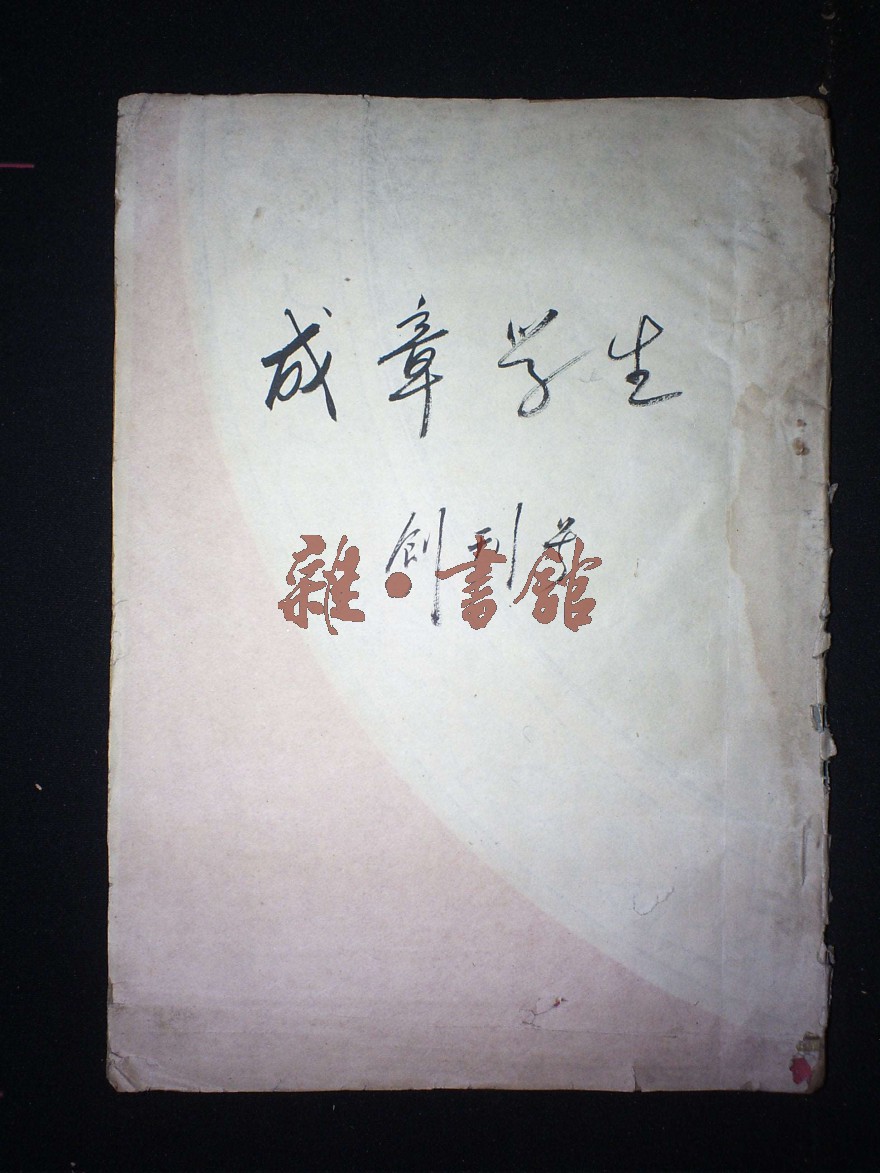 成章学生
創刊号
雜·書館